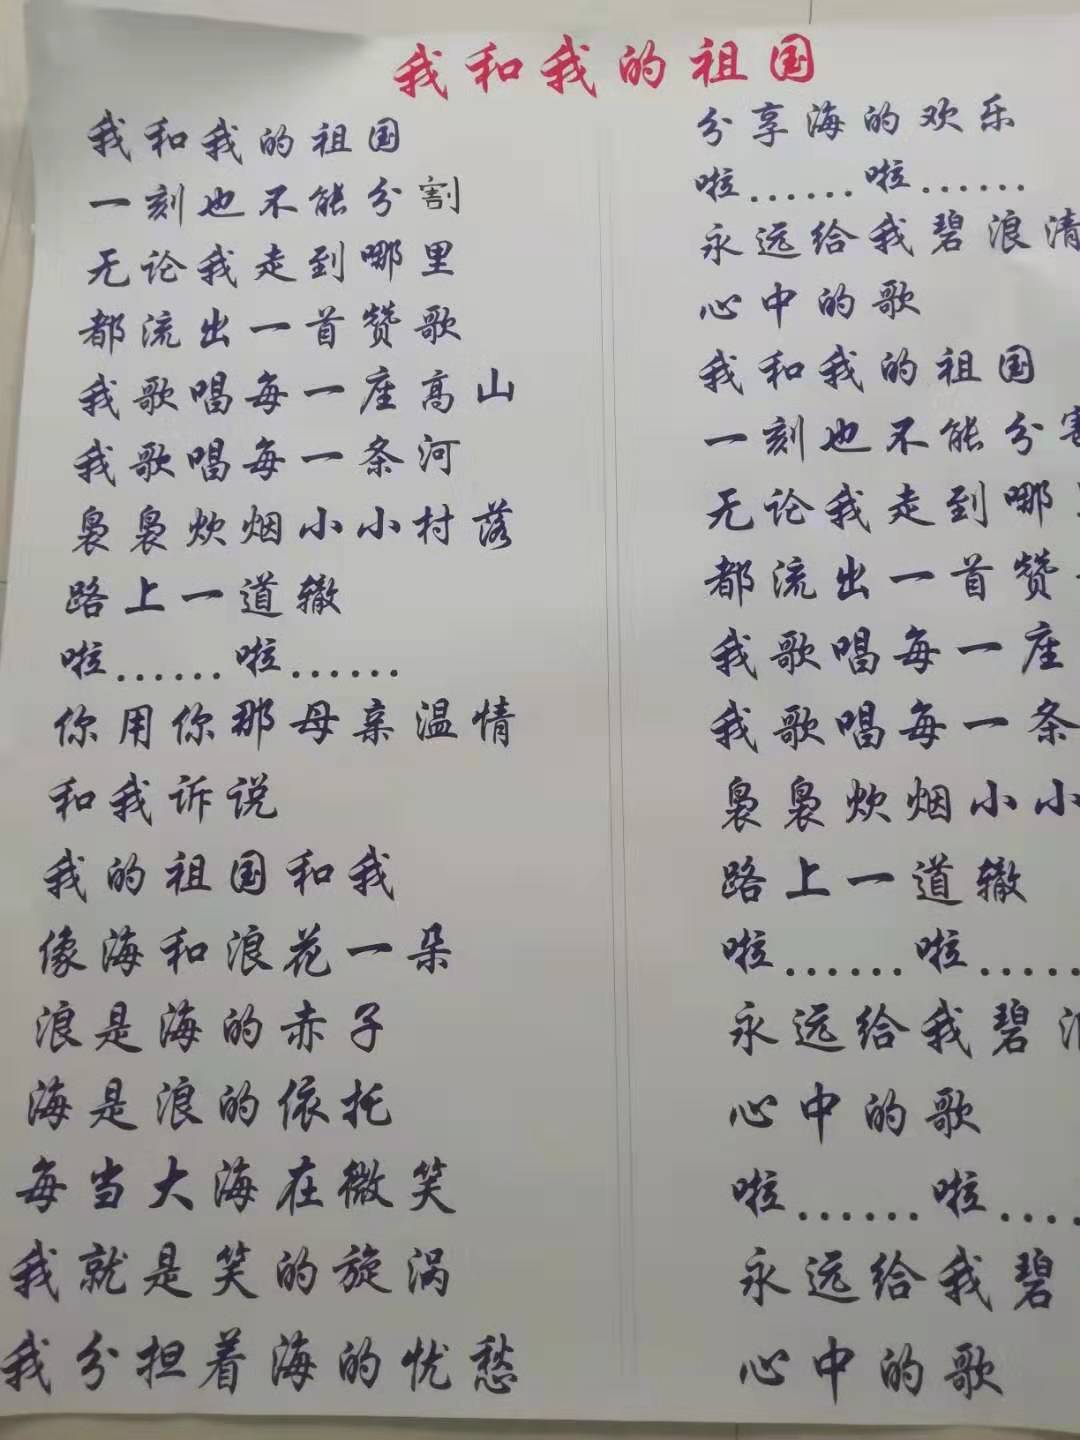 我和我的祖国
我和我的祖国
一刻也不能分割
无论我走到哪里
都流出一首赞歌
我歌唱每一座高山
我歌唱每一条河
袅袅炊烟小小村落
路上一道辙
啦......啦......
你用你那母亲温情
和我诉说
我的祖国和我
像海和浪花一朵
浪是海的赤子
海是浪的依托
每当大海在微笑
我就是笑的旋涡
我分担着海的忧愁
分享海的欢乐
啦......啦......
永远给我碧浪清
心中的歌
我和我的祖国
一刻也不能分割
无论我走到哪
都流出一首赞
我歌唱每一座
我歌唱每一条
袅袅炊烟小小
路上一道辙
啦......啦.....
永远给我碧
心中的歌
啦......啦....
永远给我碧
心中的歌